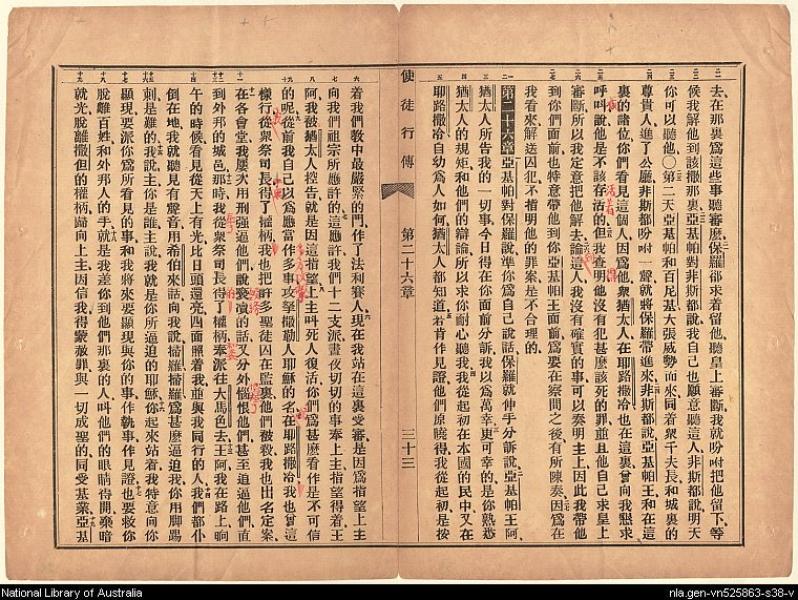 去、在那裏爲這些事聽審麽、保羅卻求着留他、聽皇上審斷、我就吩咐把他留下、等
候我解他到該撒那裏、亞基帕對非斯都說、我自己也願意聽這人、非斯都說、明天
你可以聽他、〇第二天亞基帕和百尼基大張威勢而來、同着衆千夫長、和城裏的
尊貴人進了公廳、非斯都吩咐一聲、就將保羅帶進來、非斯都說、亞基帕王、和在這
裏的諸位、你們看見這個人、因爲他、衆猶太人在耶路撒冷、也在這裏、曾向我懇求
呼叫說、他是不該存活的、但我查明他沒有犯甚麽該死的罪、並且他自己求皇上
審斷、所以我定意把他解去、論這人、我沒有確實的事可以奏明主上、因此我帶他
到你們面前、也特意帶他到你亞基帕王面前、爲要在察問之後、有所陳奏、因爲在
我看來、解送囚犯、不指明他的罪案、是不合理的、
第二十六章 亞基帕對保羅說、準你爲自己說話、保羅就伸手分訴、說、亞基帕王阿、
猶太人所告我的一切事、今日得在你面前分訴、我以爲萬幸、更可幸的、是你熟悉
猶太人的規矩、和他們的辯論、所以求你耐心聽我、我從起初在本國的民中、又在
耶路撒冷、自幼爲人如何、猶太人都知道、若肯作見證、他們原曉得我從起初、是按
使徒行傳
第二十六章
三十三
着我們教中最嚴緊的門、作了法利賽人、現在我站在這裏受審、是因爲指望上主
向我們祖宗所應許的、這應許我們十二支派、晝夜切切的事奉上主、指望得着、王
阿、我被猶太人控告、就是因這指望、上主叫死人復活、你們爲甚麽看作是不可信
的呢、從前我自己以爲應當作多事、攻擊拿撒勒人耶穌的名、在耶路撒冷我也曾這
樣行、從衆祭司長得了權柄、我也把許多聖徒囚在監裏、他們被殺、我也出名定案、
在各會堂我屢次用刑強逼他們說褻瀆的話、又分外惱恨他們、甚至追逼他們直
到外邦的城邑、那時、我從衆祭司長得了權柄、奉派往大馬色去、王阿、我在路上晌
午的時候、看見從天上有光、比日頭還亮、四面照着我、並與我同行的人、我們都仆
倒在地、我就聽見有聲音、用希伯來話向我說、掃羅、掃羅、爲甚麽逼迫我、你用脚踢
刺是難的、我說、主你是誰、主說、我就是你所逼迫的耶穌、你起來站着、我特意向你
顯現、要派你爲所看見的事、和我將來要顯現與你的事、作執事作見證、也要救你
脫離百姓和外邦人的手、就是我差你到他們那裏的人、叫他們的眼睛得開、棄暗
就光、脫離撒但的權柄、歸向上主、因信我、得蒙赦罪、與一切成聖的、同受基業、亞基
National Library of Australia
nla.gen-vn525863-s38-v